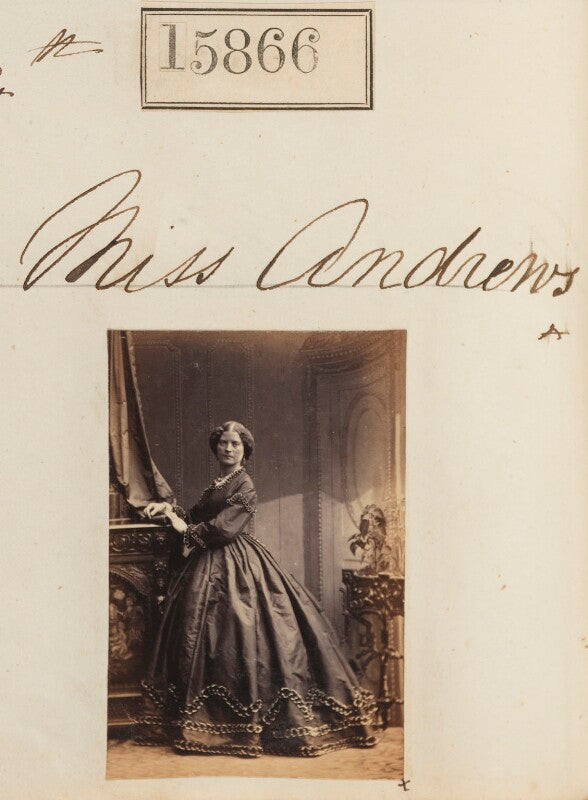 15866
Miss Andrews